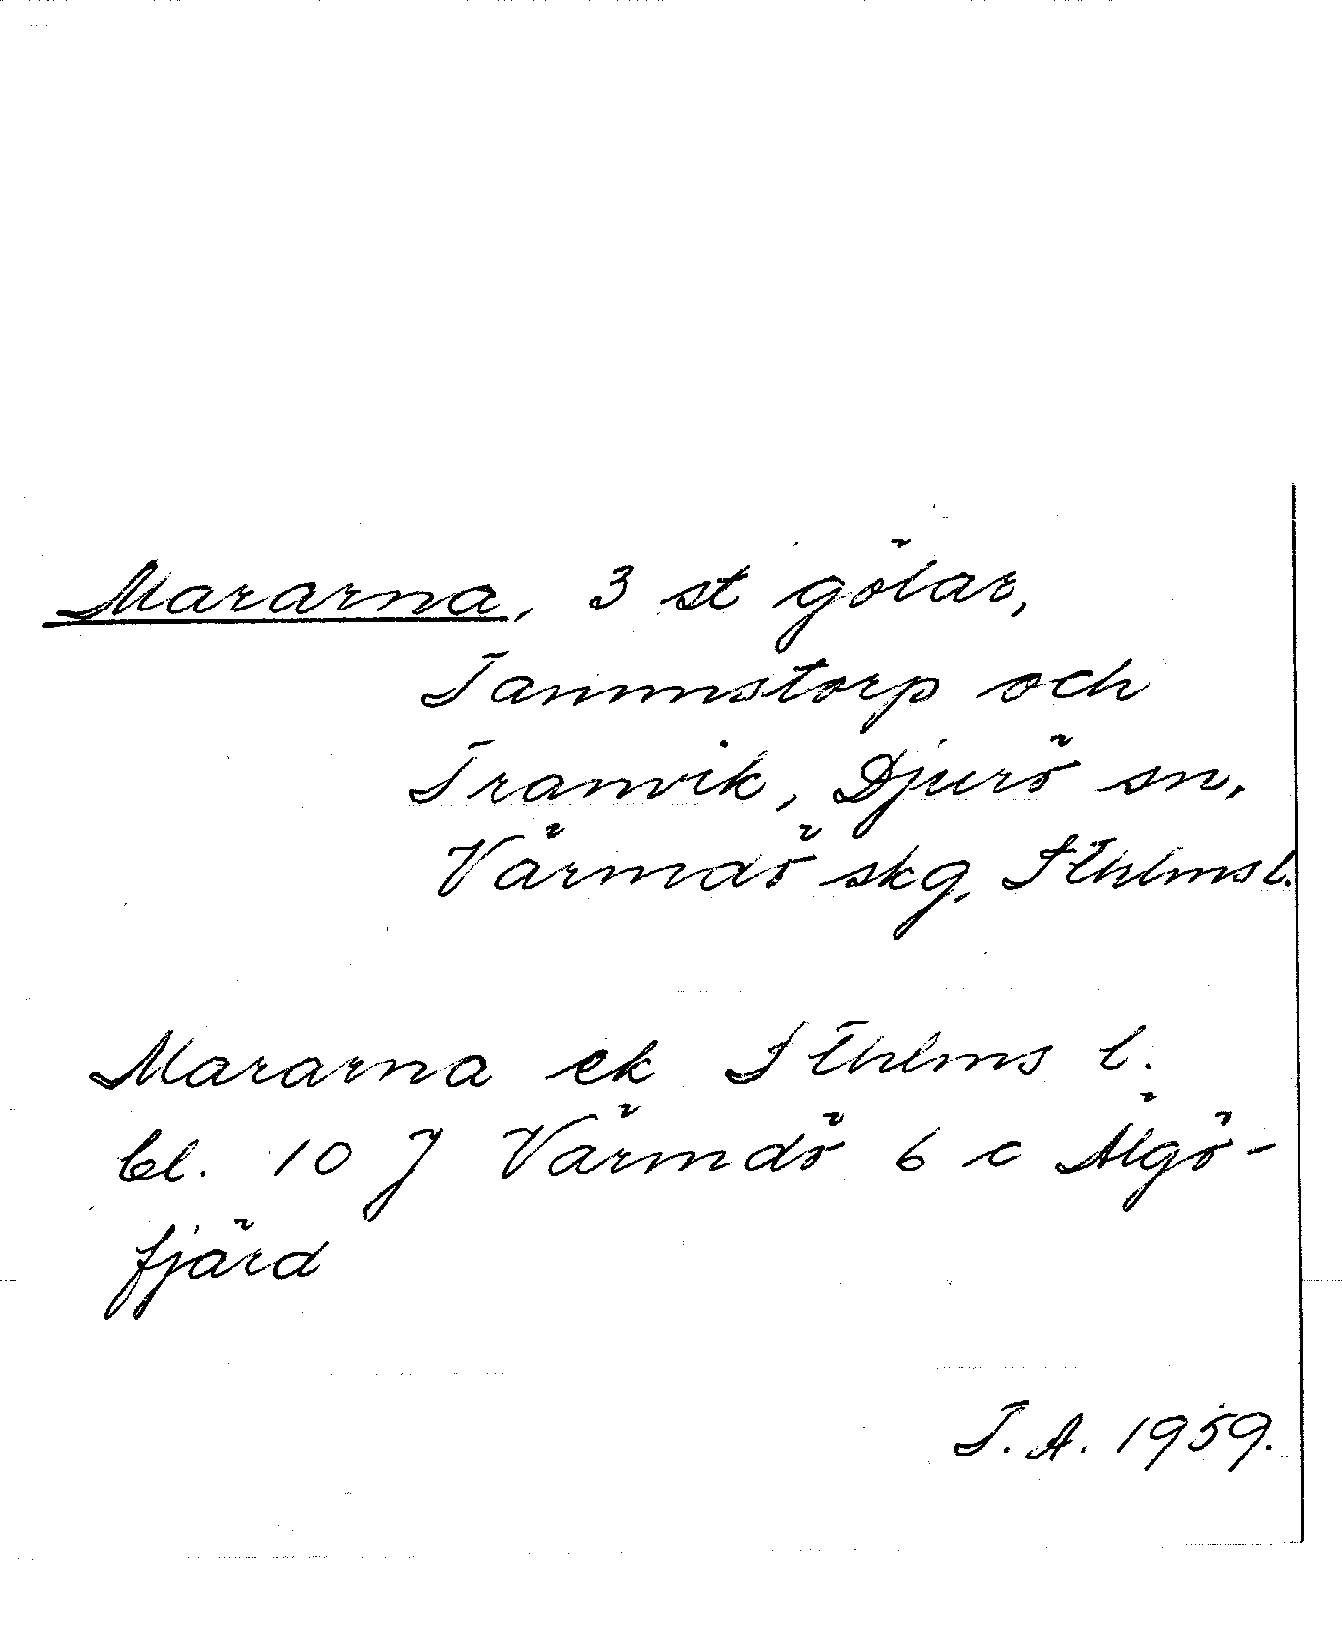 Mararna, 3 st gölar,
Tammstorp och
Tranvik, Djurö sn,
Värmdö skg, Sthlms l.
Mararna ek Sthlms l.
bl. 10 J Värmdö 6 c Älgö-
fjärd
T. A. 1959.